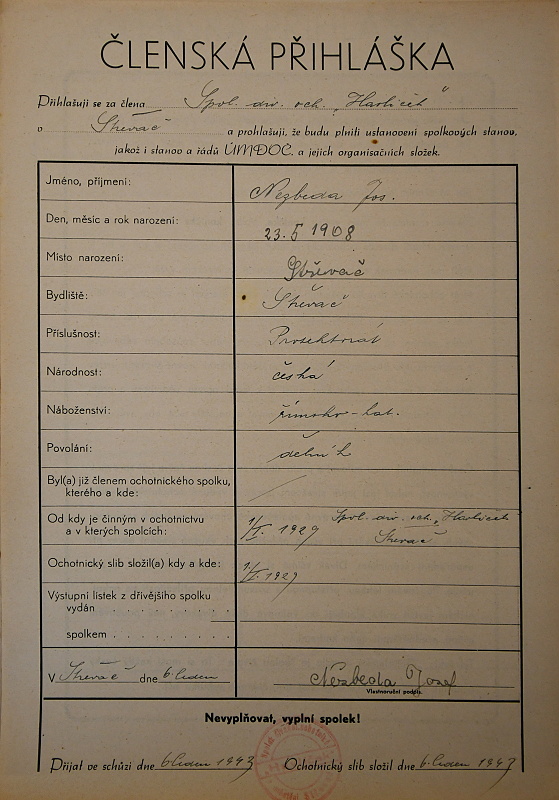 ČLENSKÁ PŘIHLÁŠKA
Přihlašuji se za člena Spol. div. och. „Havlíček"
v Střevač a prohlašuji, že budu plniti ustanovení spolkových stanov,
jakož i stanov a řádů ÚMDOČ. a jejich organisačních složek.
Jméno, příjmení: Nezbeda Jos.
Den, měsíc a rok narození: 23. 5 1908
Místo narození: Střevač
Bydliště: Střevač
Příslušnost: Protektorát
Národnost: česká
Náboženství: římsko-kat.
Povolání: dělník
Byl(a) již členem ochotnického spolku,
kterého a kde:
Od kdy je činným v ochotnictvu
a v kterých spolcích: 1/I. 1929 Spol. div. och. „Havlíček"
Střevač
Ochotnický slib složil(a) kdy a kde: 1/I. 1929
Výstupní lístek z dřívějšího spolku
vydán . . . . . . . . .
spolkem . . . . . . . . .
V Střevač dne 6. leden Nezbeda Josef
Vlastnoruční podpis.
Nevyplňovat, vyplní spolek!
Přijat ve schůzi dne 6. leden 1943 Ochotnický slib složil dne 6. leden 1943